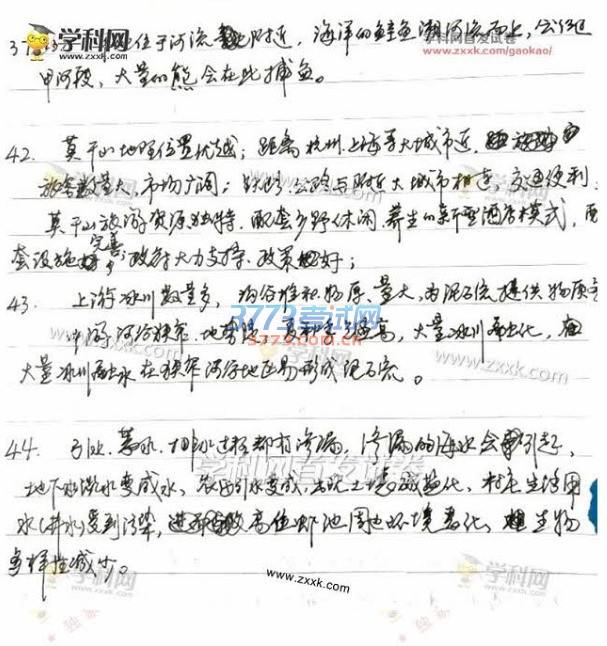 37
位于河流
附近，海洋的鲑鱼溯河流而上，会经
甲河段，大量的熊会在此捕鱼。
42. 莫干山地理位置优越；距离杭州、上海等大城市近，
旅客数量大，市场广阔；铁路、公路与附近大城市相连，交通便利
莫干山旅游资源独特，配套乡野休闲、养生的新型酒店模式，配
套设施完善；政府大力支持，政策好；
43. 上游冰川数量多，沟谷堆积物厚、量大，为泥石流提供物质
中游河谷狭窄，地势，高，大量冰川融化，
大量冰川融水在狭窄河谷地区易形成泥石流。
44. 引水、蓄水、排水过程都有渗漏，渗漏的海水会引起
地下水淡水变咸水，土壤盐碱化，村庄生活用
水（井水）受到污染，高位虾池周边环境恶化，生物
多样性减少。
学科网
www.zxxk.com
学科网首发试卷
www.zxxk.com/gaokao/
3773考试网
3773.com.cn
www.zxxk.com
学科网首发试卷
www.zxxk.com
学科网
学科网
独家